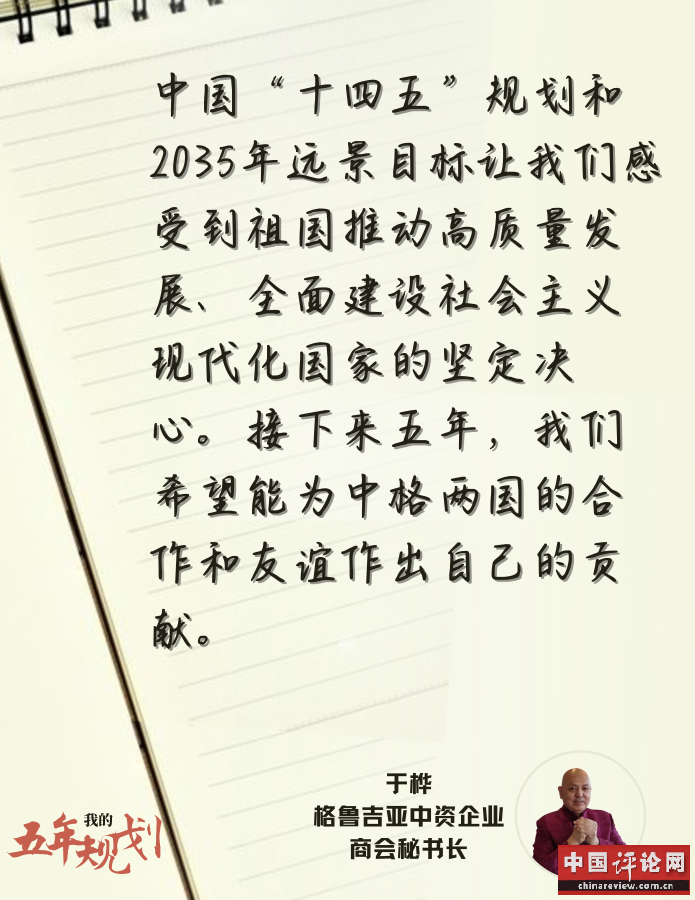 中国“十四五”规划和
2035年远景目标让我们感
受到祖国推动高质量发
展、全面建设社会主义
现代化国家的坚定决
心。接下来五年，我们
希望能为中格两国的合
作和友谊作出自己的贡
献。
于桦
格鲁吉亚中资企业
商会秘书长
我的
五年规划
中国评论网
chinareview.com.cn